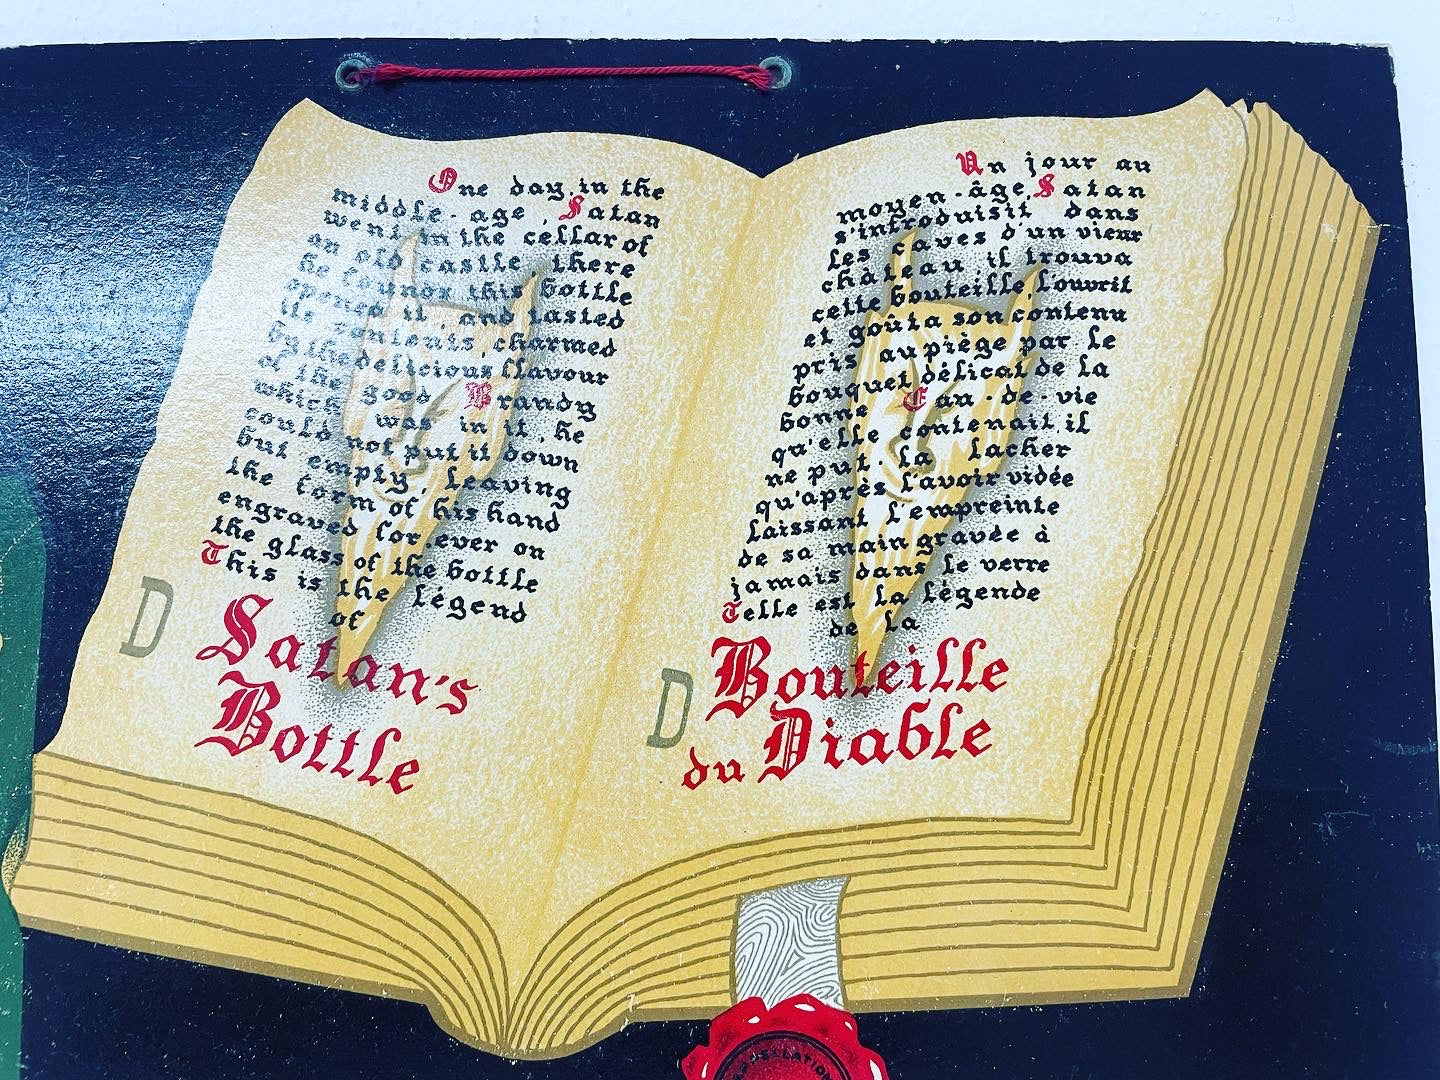 One day, in the
middle-age, Satan
went in the cellar of
an old castle there
he founds this bottle
opened it, and tasted
its contents, charmed
by the delicious flavour
of the good Brandy
which was in it, he
could not put it down
but empty, leaving
the form of his hand
engraved for ever on
the glass of the bottle
This is the légend
of
D
Satan's
Bottle
Un jour au
moyen-âge, Satan
s'introduisit dans
les caves d'un vieux
château il trouva
cette bouteille, l'ouvrit
et goûta son contenu
pris au piège par le
bouquet délicat de la
bonne Eau-de-vie
qu'elle contenait, il
ne put la lacher
qu'après l'avoir vidée
laissant l'empreinte
de sa main gravée à
jamais dans le verre
Telle est la légende
de la
D
Bouteille
du Diable
APPELLATION